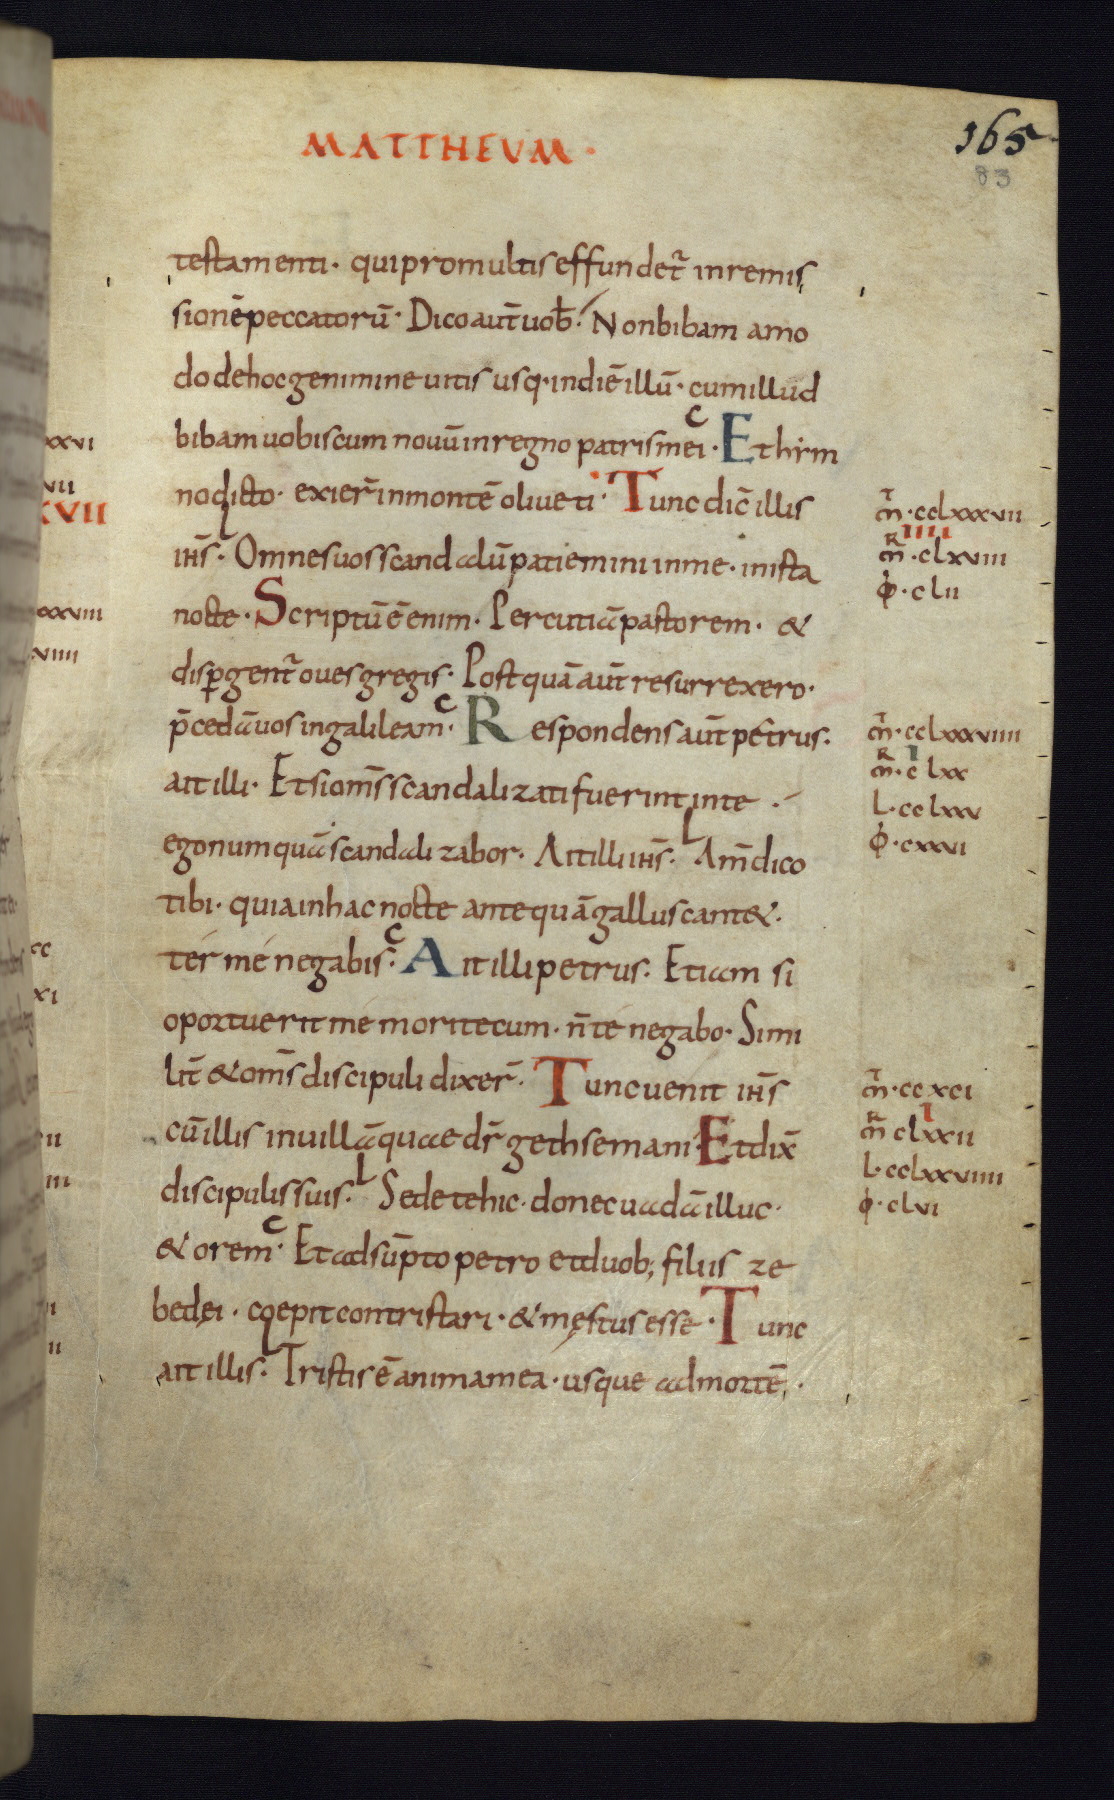 MATTHEVM·
165
83
testamenti· qui pro multis effundet̄ in remis
sionē peccatorū· Dico aut̄ uob̄· Non bibam amo
do de hoc genimine uitis usq· in diē illū· cum illud
bibam uobiscum nouū in regno patris mei· Et hẏm
no dicto· exier̄ in montē oliueti· Tunc dic̄ illis
ih̄s· Omnes uos scandalū patiemini in me· in ista
nocte· Scriptū ē enim· Percutiā pastorem· &
disꝑgent̄ oues gregis· Postquā aut̄ resurrexero·
p̄cedā uos in galileam· Respondens aut̄ petrus·
ait illi· Et si om̄s scandalizati fuerint in te·
ego numquā scandalizabor· Ait illi ih̄s· Am̄ dico
tibi· quia in hac nocte antequā gallus cant&·
ter me negabis· Ait illi petrus· Etiam si
oportuerit me mori tecum· n̄ te negabo· Simi
lit̄ & om̄s discipuli dixer̄· Tunc uenit ih̄s
cū illis in uillā quae dr̄ gethsemani· Et dix̄
discipulis suis· Sedete hic· donec uadā illuc·
& orem· Et adsūpto petro et duob; filiis ze
bedęi· coepit contristari· & męstus esse· Tunc
ait illis· Tristis ē anima mea· usque ad mortē·
m̄·cclxxxvii
IIII
m̄·clxviii
ꝧ·clii
m̄·cclxxxviiii
I
m̄·clxx
L·cclxxv
ꝧ·cxxvi
m̄·ccxci
I
m̄ clxxii
L·cclxxviiii
ꝧ·clvi